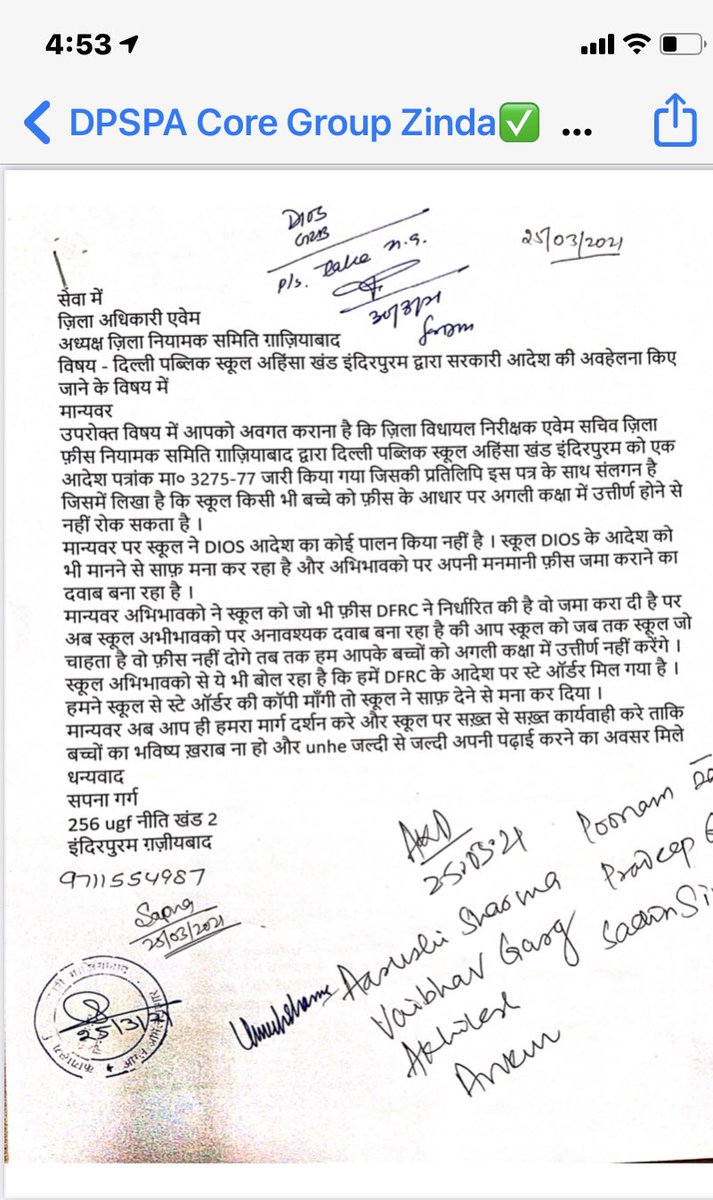 4:53
DPSPA Core Group Zinda✅ ...
DIOS
GZB
25/03/2021
P/s. take n.a.
सेवा में
ज़िला अधिकारी एवेम
अध्यक्ष ज़िला नियामक समिति ग़ाज़ियाबाद
विषय - दिल्ली पब्लिक स्कूल अहिंसा खंड इंदिरपुरम द्वारा सरकारी आदेश की अवहेलना किए
जाने के विषय में
मान्यवर
उपरोक्त विषय में आपको अवगत कराना है कि ज़िला विधायल निरीक्षक एवेम सचिव ज़िला
फ़ीस नियामक समिति ग़ाज़ियाबाद द्वारा दिल्ली पब्लिक स्कूल अहिंसा खंड इंदिरपुरम को एक
आदेश पत्रांक मा० 3275-77 जारी किया गया जिसकी प्रतिलिपि इस पत्र के साथ संलगन है
जिसमें लिखा है कि स्कूल किसी भी बच्चे को फ़ीस के आधार पर अगली कक्षा में उत्तीर्ण होने से
नहीं रोक सकता है ।
मान्यवर पर स्कूल ने DIOS आदेश का कोई पालन किया नहीं है । स्कूल DIOS के आदेश को
भी मानने से साफ़ मना कर रहा है और अभिभावको पर अपनी मनमानी फ़ीस जमा कराने का
दवाब बना रहा है ।
मान्यवर अभिभावको ने स्कूल को जो भी फ़ीस DFRC ने निर्धारित की है वो जमा करा दी है पर
अब स्कूल अभीभावको पर अनावश्यक दवाब बना रहा है की आप स्कूल को जब तक स्कूल जो
चाहता है वो फ़ीस नहीं दोगे तब तक हम आपके बच्चों को अगली कक्षा में उत्तीर्ण नहीं करेंगे ।
स्कूल अभिभावको से ये भी बोल रहा है कि हमें DFRC के आदेश पर स्टे ऑर्डर मिल गया है ।
हमने स्कूल से स्टे ऑर्डर की कॉपी माँगी तो स्कूल ने साफ़ देने से मना कर दिया ।
मान्यवर अब आप ही हमरा मार्ग दर्शन करे और स्कूल पर सख़्त से सख़्त कार्यवाही करे ताकि
बच्चों का भविष्य ख़राब ना हो और unhe जल्दी से जल्दी अपनी पढ़ाई करने का अवसर मिले
धन्यवाद
सपना गर्ग
256 ugf नीति खंड 2
इंदिरपुरम ग़ज़ीयबाद
9711554987
Sapna
25/03/2021
25.03.21
Poonam
Aarushi Sharma
Pradeep
Vaibhav Garg
Akhilesh
Ankur
Umesh Sharma